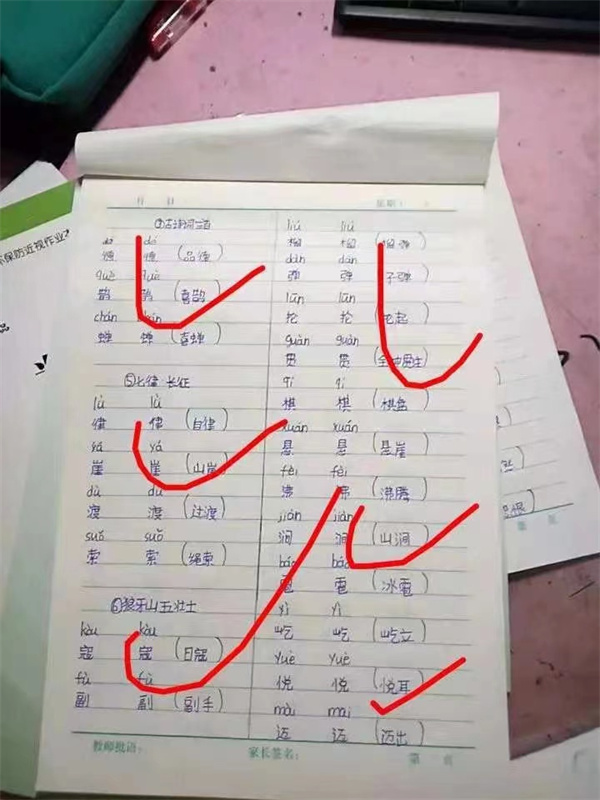 月 日
星期:
古诗词三首
dé dé
德 德 (品德)
què què
鹊 鹊 (喜鹊)
chán chán
蝉 蝉 (喜蝉)
⑤七律 长征
lǜ lǜ
律 律 (自律)
yá yá
崖 崖 (山崖)
dù dù
渡 渡 (过渡)
suǒ suǒ
索 索 (绳索)
⑥狼牙山五壮士
kòu kòu
寇 寇 (日寇)
fù fù
副 副 (副手)
liú liú
榴 榴 (榴弹)
dàn dàn
弹 弹 (子弹)
lūn lūn
抡 抡 (抡起)
guàn guàn
贯 贯 (全神贯注)
qí qí
棋 棋 (棋盘)
xuán xuán
悬 悬 (悬崖)
fèi fèi
沸 沸 (沸腾)
jiàn jiàn
涧 涧 (山涧)
báo báo
雹 雹 (冰雹)
yì yì
屹 屹 (屹立)
yuè yuè
悦 悦 (悦耳)
mài mài
迈 迈 (迈出)
教师批语: 家长签名: 第 页
保防近视作业
品
第 页